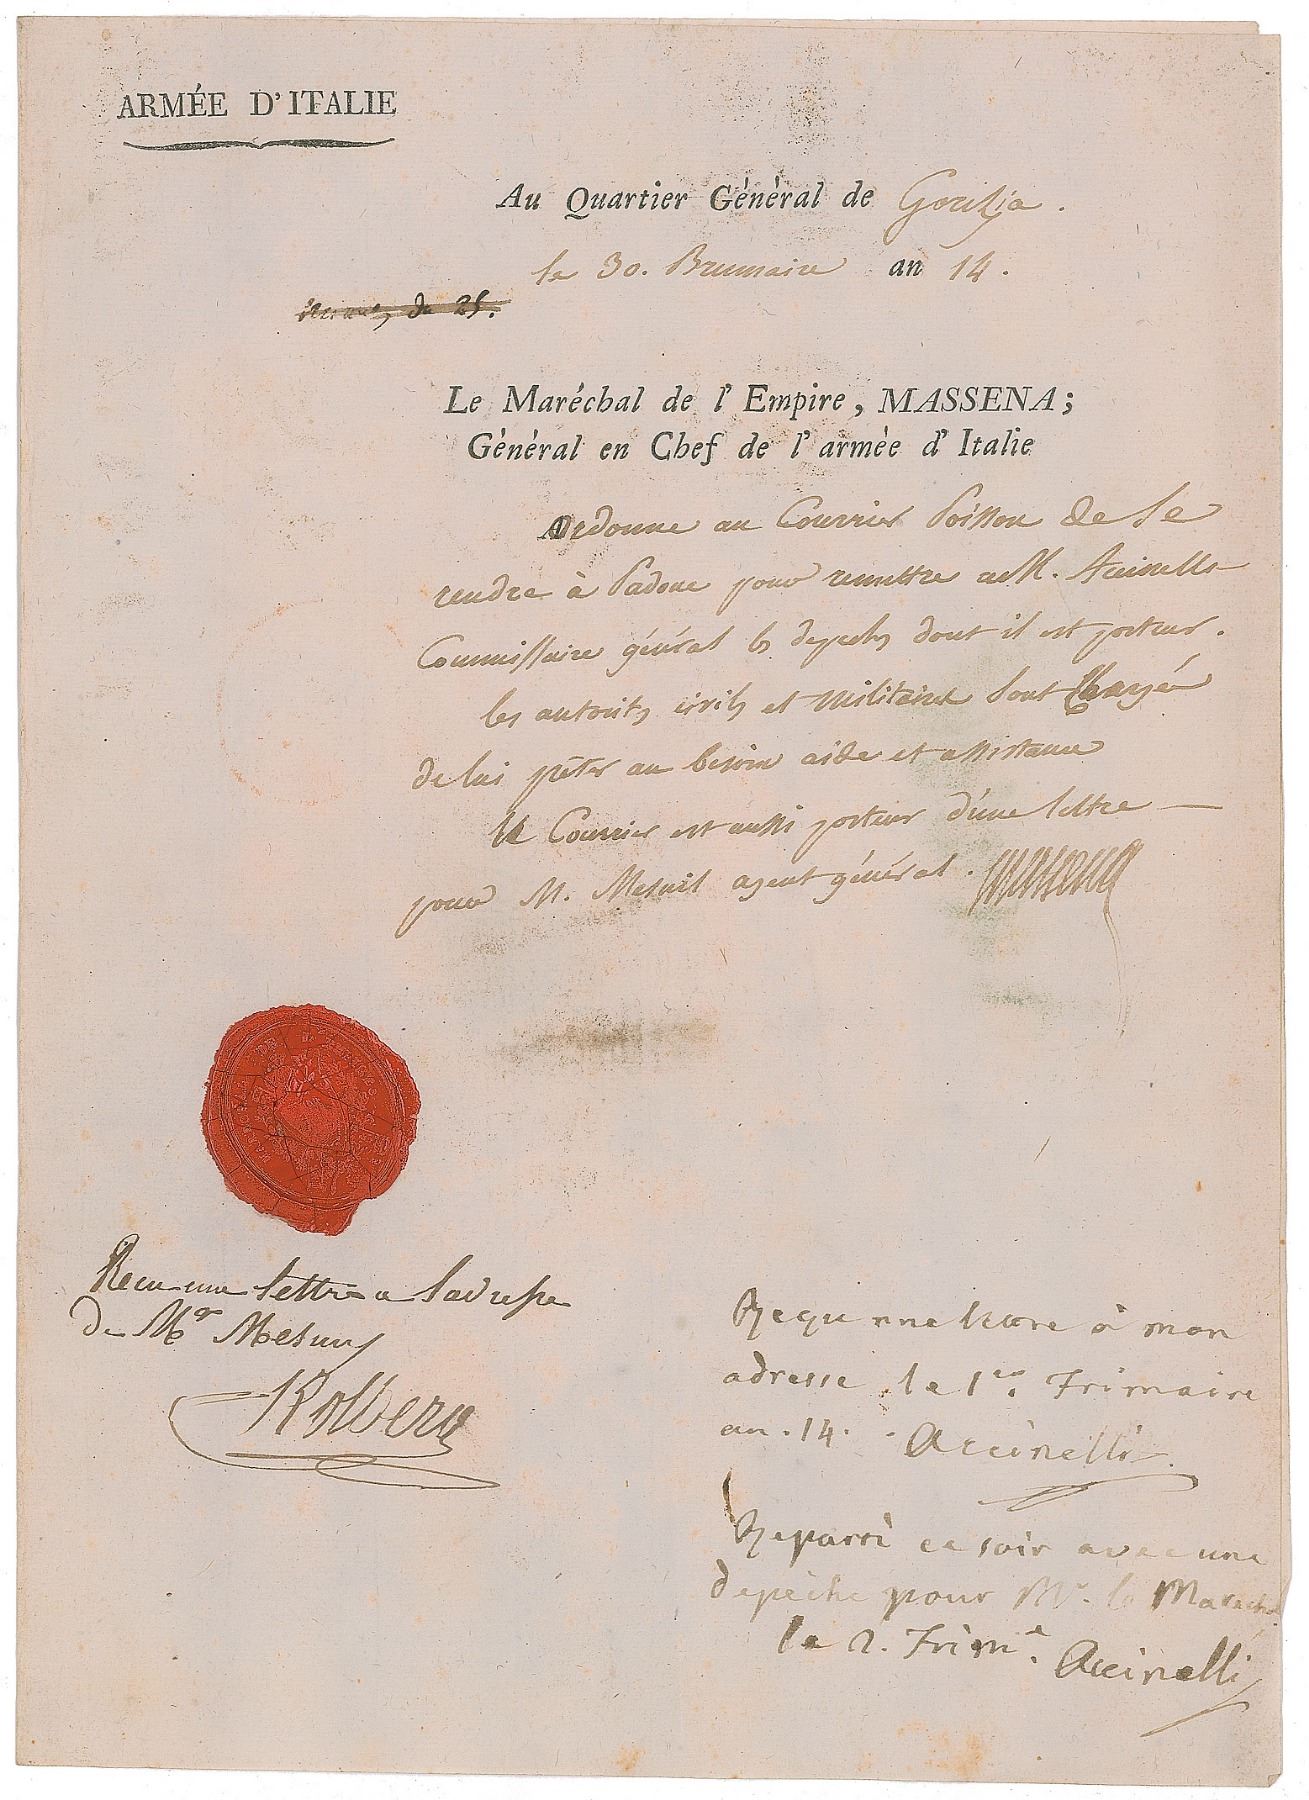 ARMÉE D'ITALIE
Au Quartier Général de Gorizja.
le 30. Brumaire an 14.
du 25.
Le Maréchal de l'Empire, MASSENA;
Général en Chef de l'armée d'Italie
Ordonne au Courrier Poisson de se
rendre à Padoue pour remettre a M. Accinelli
Commissaire général les depeches dont il est porteur.
les autorités civils et militaires sont chargés
de lui prêter au besoin aide et assistance
le Courrier est aussi porteur d'une lettre
pour M. Mesnil agent général. Massena
Recu une lettre a ladresse
de Mr Mesnil
Kolberg
Reçu une lettre à mon
adresse le 1er. Frimaire
an. 14. Accinelli
Reparti ce soir avec une
depêche pour Mr. le Marechal
le 2. Frime. Accinelli